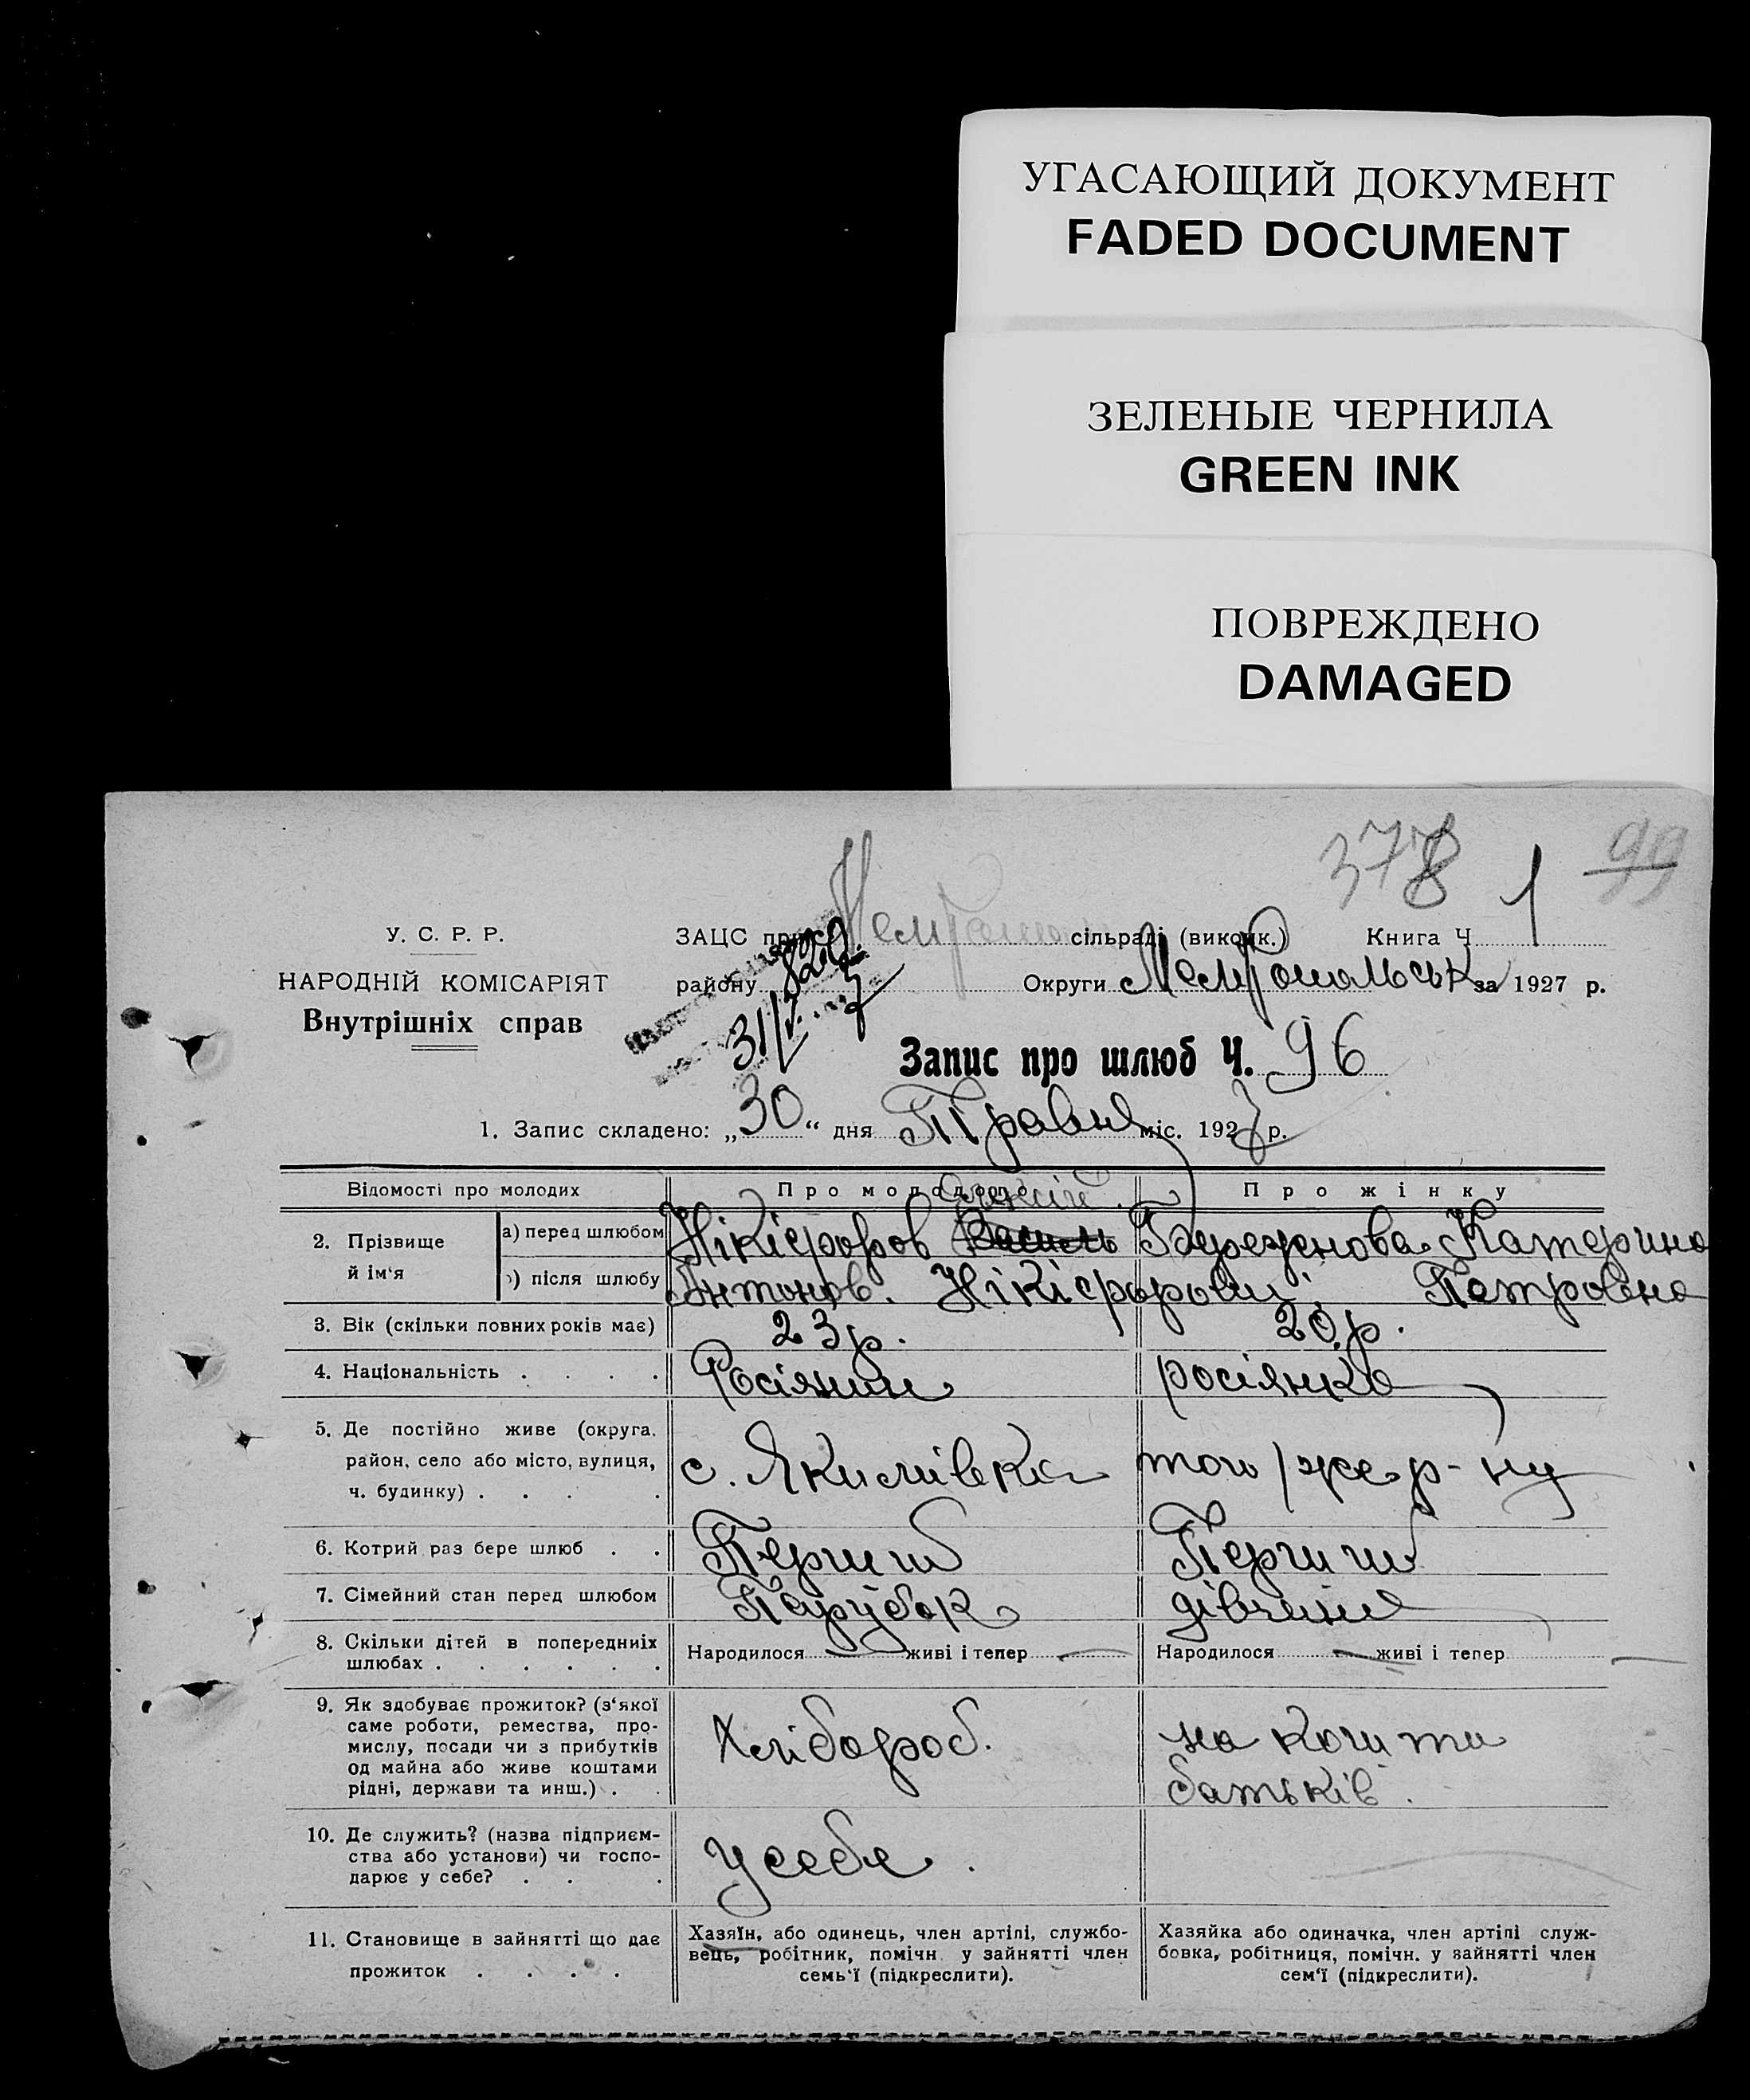 УГАСАЮЩИЙ ДОКУМЕНТ
FADED DOCUMENT
ЗЕЛЕНЫЕ ЧЕРНИЛА
GREEN INK
ПОВРЕЖДЕНО
DAMAGED
378 1 99
У. С. Р. Р.
НАРОДНІЙ КОМІСАРІЯТ
Внутрішніх справ
ЗАЦС при сільраді (викоик.) Книга Ч
району Округи Мелітопольськ за 1927 р.
31/V
Запис про шлюб Ч. 96
1. Запис складено: „30“ дня Травня міс. 1927 р.
Відомості про молодих Про молодого Про жінку
Олексій
2. Прізвище й ім‘я
а) перед шлюбом Нікіфоров Василь Береженова Катерина
) після шлюбу Антонов. Нікіфорови Петровна
3. Вік (скільки повних років має) 23 р. 20 р.
4. Національність . . . . Росіянин росіянка
5. Де постійно живе (округа,
район, село або місто, вулиця,
ч. будинку) . . . . с. Якимівка того / же р-ну
6. Котрий раз бере шлюб . . Перший Перший
7. Сімейний стан перед шлюбом Парубок дівчина
8. Скільки дітей в попередниіх
шлюбах . . . . . . Народилося живі і тепер — Народилося — живі і тепер —
9. Як здобуває прожиток? (з‘якої
саме роботи, ремества, про-
мислу, посади чи з прибутків
од майна або живе коштами
рідні, держави та инш.) . . Хлібороб. на кошти
батьків.
10. Де служить? (назва підприєм-
ства або установи) чи госпо-
дарює у себе? . . . у себе.
11. Становище в зайнятті що дає
прожиток . . . .
Хазяїн, або одинець, член артілі, службо-
вець, робітник, помічн. у зайнятті член
семь‘ї (підкреслити).
Хазяйка або одиначка, член артілі служ-
бовка, робітниця, помічн. у зайнятті член
сем‘ї (підкреслити).